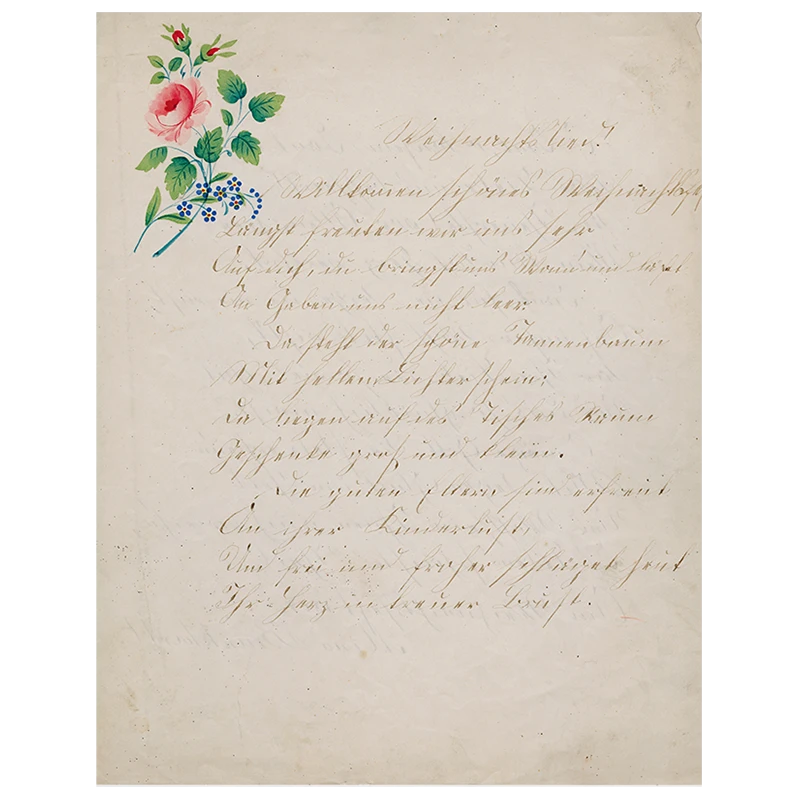 Weihnachtslied!
Willkommen schönes Weihnachtsfest
Längst freuten wir uns sehr
Auf dich, du bringst uns Wonn' und
An Gaben uns nicht leer.
Da steht der schöne Tannenbaum
Mit hellem Lichterschein;
Da liegen auf des Tisches Raum
Geschenke groß und klein.
Die guten Eltern sind erfreut
An ihrer Kinderlust,
Und frei und froher schläget heut
Ihr Herz in treuer Brust.